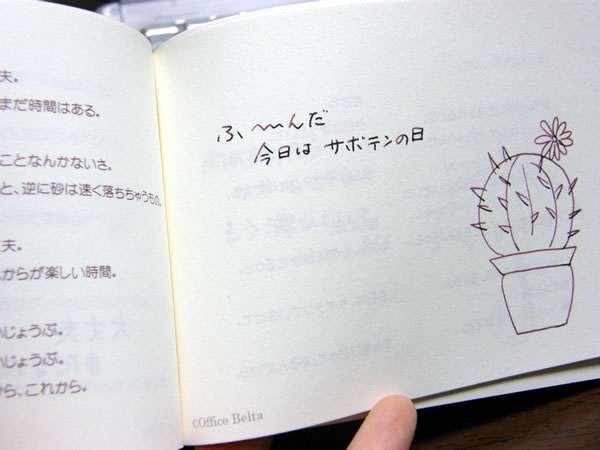 夫。
まだ時間はある。
ことなんかないさ。
と、逆に砂は速く落ちちゃうもの。
夫。
からが楽しい時間。
いじょうぶ。
いじょうぶ。
から、これから。
ふ〜〜んだ
今日は サボテンの日
©Office Belta